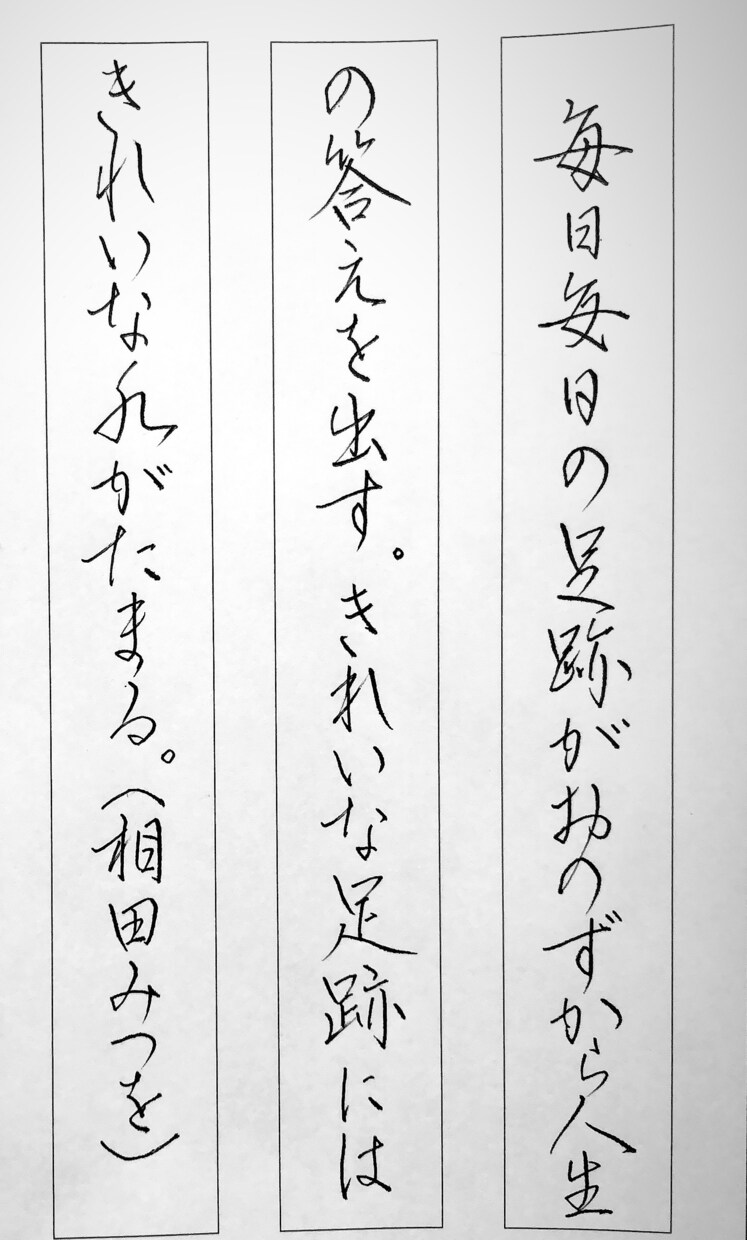 毎日毎日の足跡がおのずから人生
の答えを出す。きれいな足跡には
きれいな水がたまる。(相田みつを)